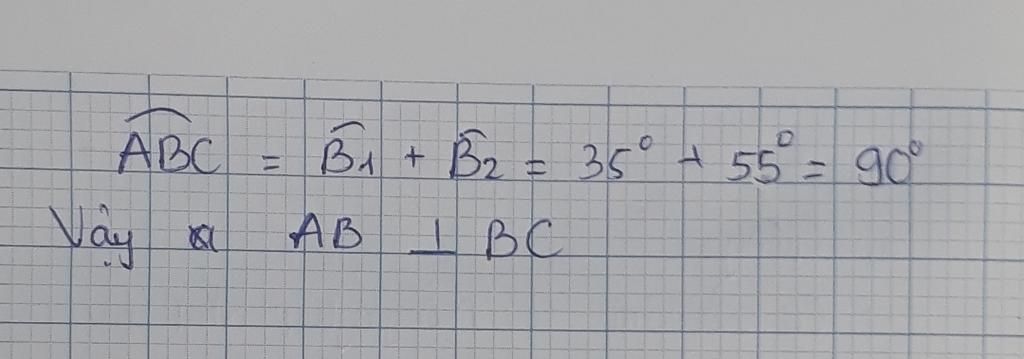 ABC = B1 + B2 = 35° + 55° = 90°
Vậy AB ⊥ BC